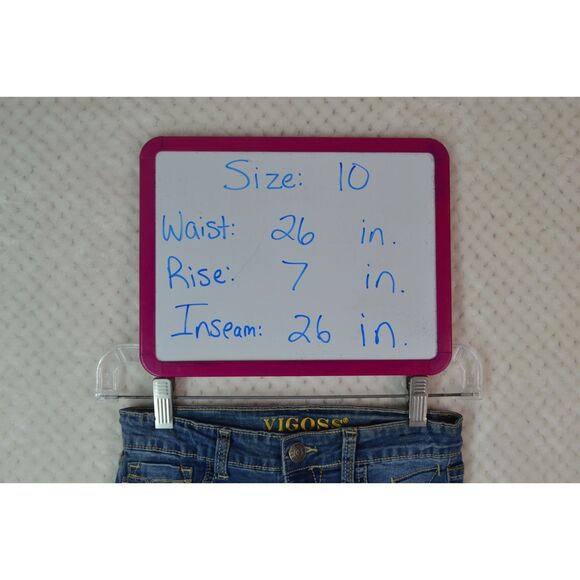 Size: 10
Waist: 26 in.
Rise: 7 in.
Inseam: 26 in.
VIGOSS®